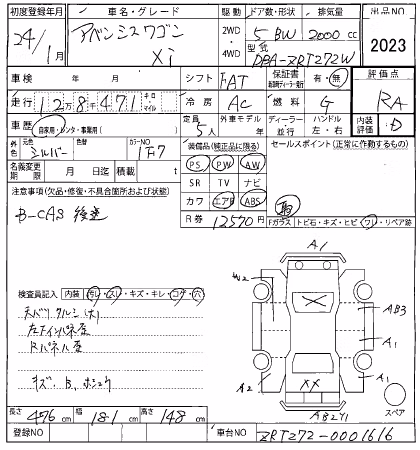 初度登録年月 車名・グレード 駆動 ドア数・形状 排気量 出品NO
24/1月 アベンシスワゴン Xi 2WD・4WD 5 BW 2000cc 2023
型式 DBA-ZRT272W
車検 年 月 シフト FAT 保証書 有・無 評価点
走行 12万8千471 キロ・マイル 冷房 AC 燃料 G RA
車歴 自家用・レンタ・事業用( ) 定員 5人 外車モデル 年 ディーラー 並行 ハンドル 左・右 内装評価 D
外色 元色 シルバー 色替 カラーNO 1F7 装備品(純正品に限る) セールスポイント(正常に作動するもの)
名義変更期限 月 日迄 積載量 t PS PW AW
注意事項(欠品・修復・不具合箇所および状態) SR TV ナビ
B-CAS 後送 カワ エアB ABS
R券 12570円 Fガラス トビ石・キズ・ヒビ ワレ・リペア跡
A1
W2
検査員記入 内装 汚レ・スレ・キズ・キレ・コゲ・穴
天バリ タルミ(大) AB3
左フインパネ歪 A1
Rパネル歪
キズ、B、ホシュウ A2 XX A1
AB2Y1 スペア
長さ 476cm 幅 181cm 高さ 148cm
登録NO 車台NO ZRT272-0001616